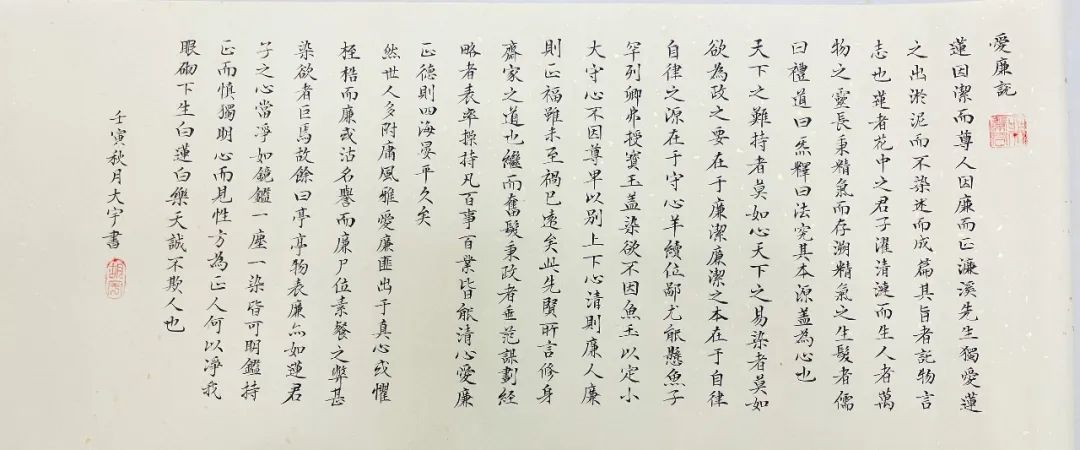 愛廉説
蓮因潔而尊人因廉而正濂溪先生獨愛蓮
之出淤泥而不染述而成篇其旨者託物言
志也蓮者花中之君子濯清漣而生人者萬
物之靈長秉精氣而存溯精氣之生髮者儒
曰禮道曰炁釋曰法究其本源蓋為心也
天下之難持者莫如心天下之易染者莫如
欲為政之要在于廉潔廉潔之本在于自律
自律之源在于守心羊續位鄙尤能懸魚子
罕列卿弗授寶玉蓋染欲不因魚玉以定小
大守心不因尊卑以別上下心清則廉人廉
則正福雖未至禍已遠矣此先賢所言修身
齋家之道也繼而奮髮秉政者垂范謀劃經
略者表率操持凡百事百業皆能清心愛廉
正德則四海晏平久矣
然世人多附庸風雅愛廉匪出于真心或懼
桎梏而廉或沽名譽而廉尸位素餐之弊甚
染欲者巨焉故餘曰亭亭物表廉亦如蓮君
子之心當淨如鏡鑑一塵一染皆可明鑑持
正而慎獨明心而見性方為正人何以淨我
眼砌下生白蓮白樂天誠不欺人也
壬寅秋月大宇書